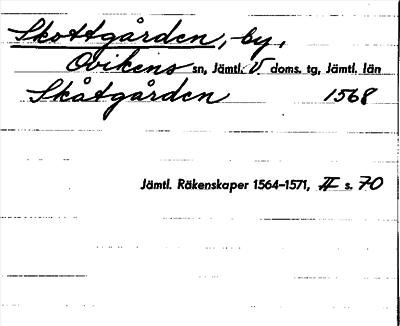 Skottgården, by,
Ovikens sn, Jämtl. V. doms. tg, Jämtl. län
Skåtgården 1568
Jämtl. Räkenskaper 1564–1571, II s. 70